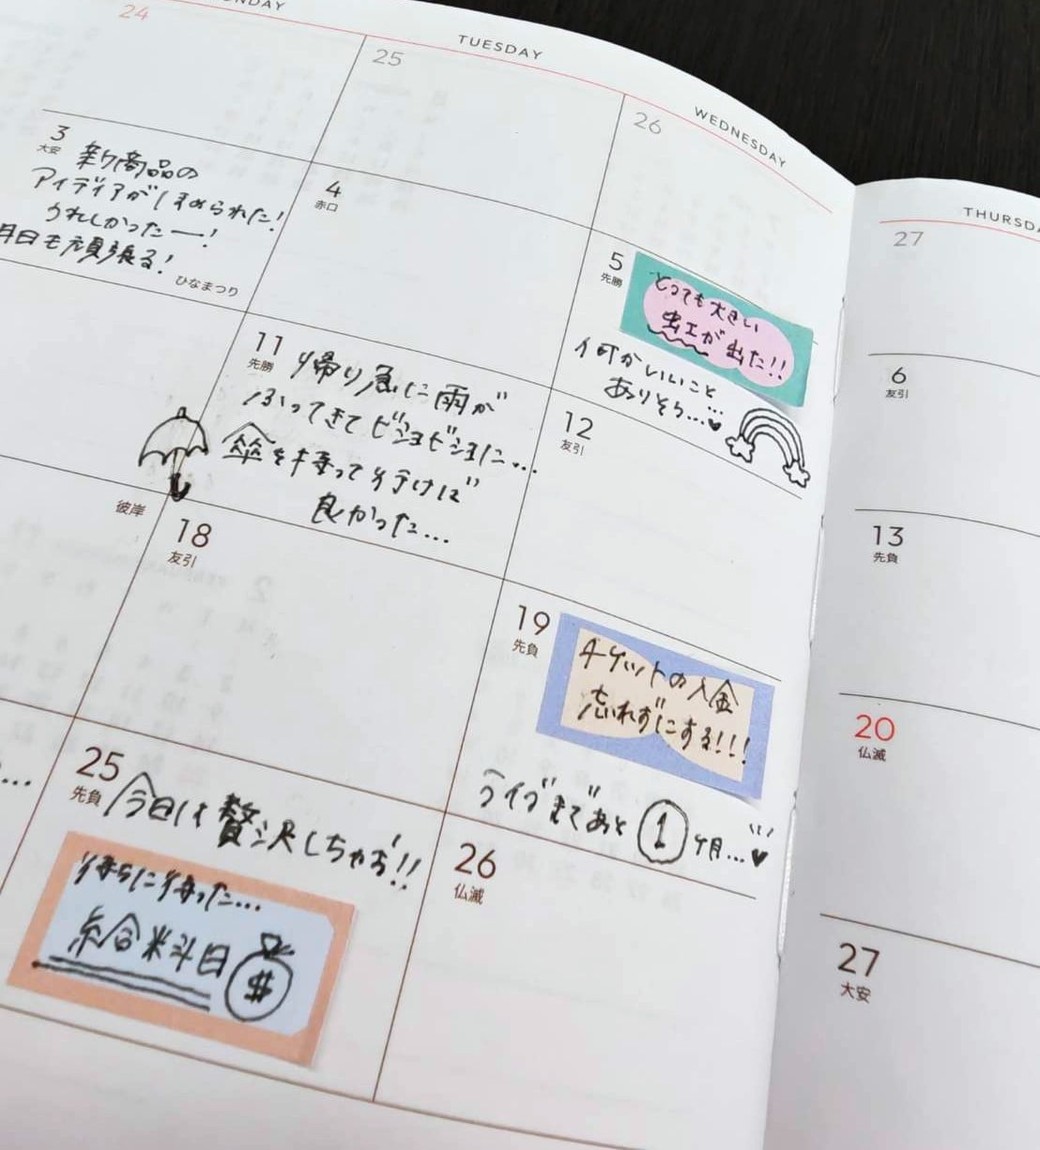 NDAY
TUESDAY
WEDNESDAY
THURSDA
24
25
26
27
3
大安
新商品の
アイディアがほめられた!
うれしかったー!
明日も頑張る!
ひなまつり
4
赤口
5
先勝
とっても大きい
虹が出た!!
何かいいこと
ありそう...♥
6
友引
11
先勝
帰り急に雨が
ふってきてビショビショに...
傘を持って行けば
良かった...
12
友引
13
先負
彼岸
18
友引
19
先負
チケットの入金
忘れずにする!!!
ライブまであと①ヶ月...♥
20
仏滅
...
25
先負
今日は贅沢しちゃお!!
待ちに待った...
給料日 $
26
仏滅
27
大安